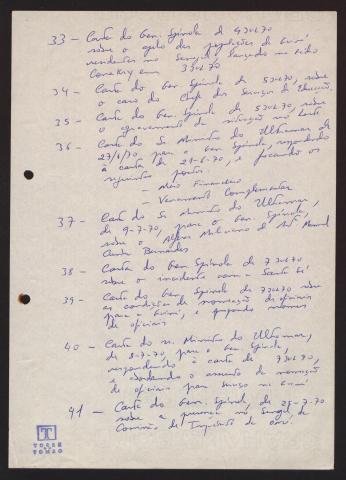 33 — Carta do Gen. Spínola de 4JUL70
sobre o apelo das populações da Guiné
residentes no Senegal, lançado na rádio
Conakry em 3JUL70
34 — Carta do Gen. Spínola de 5JUL70, sobre
o caso do Chefe dos Serviços de Educação
35 — Carta do Gen. Spínola de 5JUL70, sobre
o agravamento da situação no Leste
36 — Carta do Sr Ministro do Ultramar de
27/6/70, para o Gen Spínola, respondendo
à carta de 21-6-70, e focando os
seguintes pontos:
— Meio Financeiro
— Vencimento Complementar
37 — Carta do Sr Ministro do Ultramar,
de 9-7-70, para o Gen. Spínola,
sobre o Alferes Miliciano de Manuel
Bernardes
38 — Carta do Gen. Spínola de 7JUL70
sobre o incidente com a Santa Sé
39 — Carta do Gen. Spínola de 7JUL70 sobre
as condições de nomeação de oficiais
para a Guiné, e
de oficiais
40 — Carta do sr. Ministro do Ultramar,
de 8-7-70, para o Gen Spínola,
respondendo à carta de 7JUL70,
e abordando o assunto da nomeação
de oficiais para serviço na Guiné
41 — Carta do Gen. Spínola, de 25-7-70
sobre a presença no Senegal, de
Comissão de Inquérito da ONU.
TORRE
DO
TOMBO